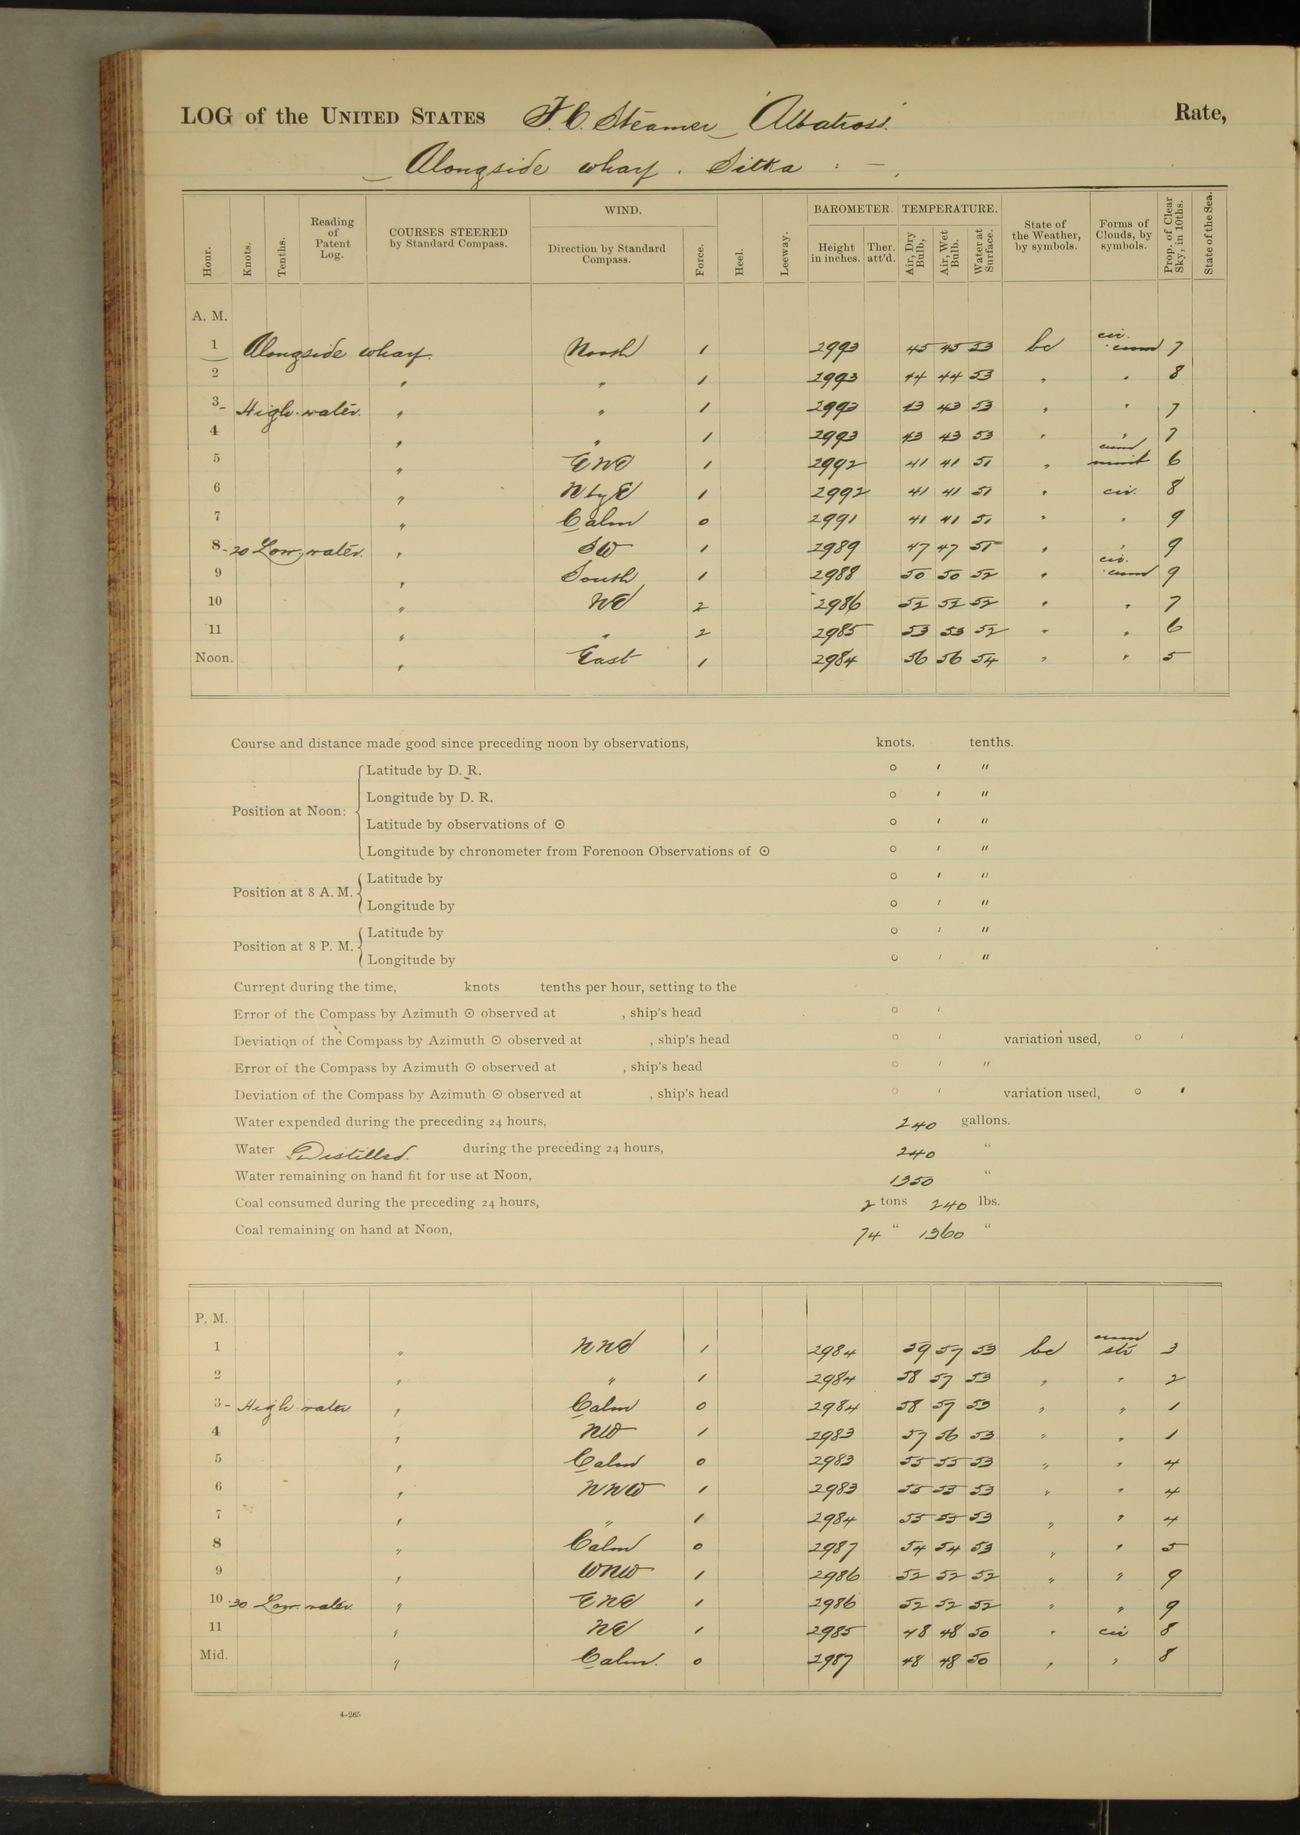 LOG of the UNITED STATES F. C. Steamer "Albatross" Rate,
Alongside wharf. Sitka
Hour. Knots. Tenths. Reading of Patent Log. COURSES STEERED by Standard Compass. WIND. Direction by Standard Compass. Force. Heel. Leeway. BAROMETER. Height in inches. Ther. att'd. TEMPERATURE. Air, Dry Bulb, Air, Wet Bulb. Water at Surface. State of the Weather, by symbols. Forms of Clouds, by symbols. Prop. of Clear Sky, in 10ths. State of the Sea.
A. M.
1 Alongside wharf. North 1 2993 45 45 53 bc cir. cum 7
2 " " 1 2993 44 44 53 " " 8
3- High water. " " 1 2993 43 43 53 " " 7
4 " " 1 2993 43 43 53 " " 7
5 " ENE 1 2992 41 41 51 " cum 6
6 " N by E 1 2992 41 41 51 " cir. 8
7 " Calm 0 2991 41 41 51 " " 9
8-20 Low water. " SW 1 2989 47 47 51 " " 9
9 " South 1 2988 50 50 52 " cir. cum 9
10 " NE 2 2986 52 52 52 " " 7
11 " " 2 2985 53 53 52 " " 6
Noon. " East 1 2984 56 56 54 " " 5
Course and distance made good since preceding noon by observations, knots. tenths.
Position at Noon:
Latitude by D. R. ° ′ ″
Longitude by D. R. ° ′ ″
Latitude by observations of ⊙ ° ′ ″
Longitude by chronometer from Forenoon Observations of ⊙ ° ′ ″
Position at 8 A. M.
Latitude by ° ′ ″
Longitude by ° ′ ″
Position at 8 P. M.
Latitude by ° ′ ″
Longitude by ° ′ ″
Current during the time, knots tenths per hour, setting to the
Error of the Compass by Azimuth ⊙ observed at , ship's head ° ′
Deviation of the Compass by Azimuth ⊙ observed at , ship's head ° ′ variation used, ° ′
Error of the Compass by Azimuth ⊙ observed at , ship's head ° ′ ″
Deviation of the Compass by Azimuth ⊙ observed at , ship's head ° ′ variation used, ° ′
Water expended during the preceding 24 hours, 240 gallons.
Water Distilled. during the preceding 24 hours, 240 "
Water remaining on hand fit for use at Noon, 1350 "
Coal consumed during the preceding 24 hours, 2 tons 240 lbs.
Coal remaining on hand at Noon, 74 " 1360 "
P. M.
1 " NNE 1 2984 59 57 53 bc cum str 3
2 " " 1 2984 58 57 53 " " 2
3- High water " Calm 0 2984 58 57 53 " " 1
4 " NW 1 2983 57 56 53 " " 1
5 " Calm 0 2983 55 55 53 " " 4
6 " NNW 1 2983 55 55 53 " " 4
7 " " 1 2984 55 55 53 " " 4
8 " Calm 0 2987 54 54 53 " " 5
9 " WNW 1 2986 52 52 52 " " 9
10-30 Low water " ENE 1 2986 52 52 52 " " 9
11 " NE 1 2985 48 48 50 " cir 8
Mid. " Calm. 0 2987 48 48 50 " " 8
4-265